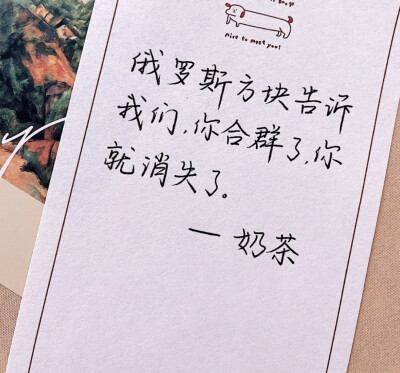 nice to meet you!
俄罗斯方块告诉
我们,你合群了,你
就消失了。
— 奶茶